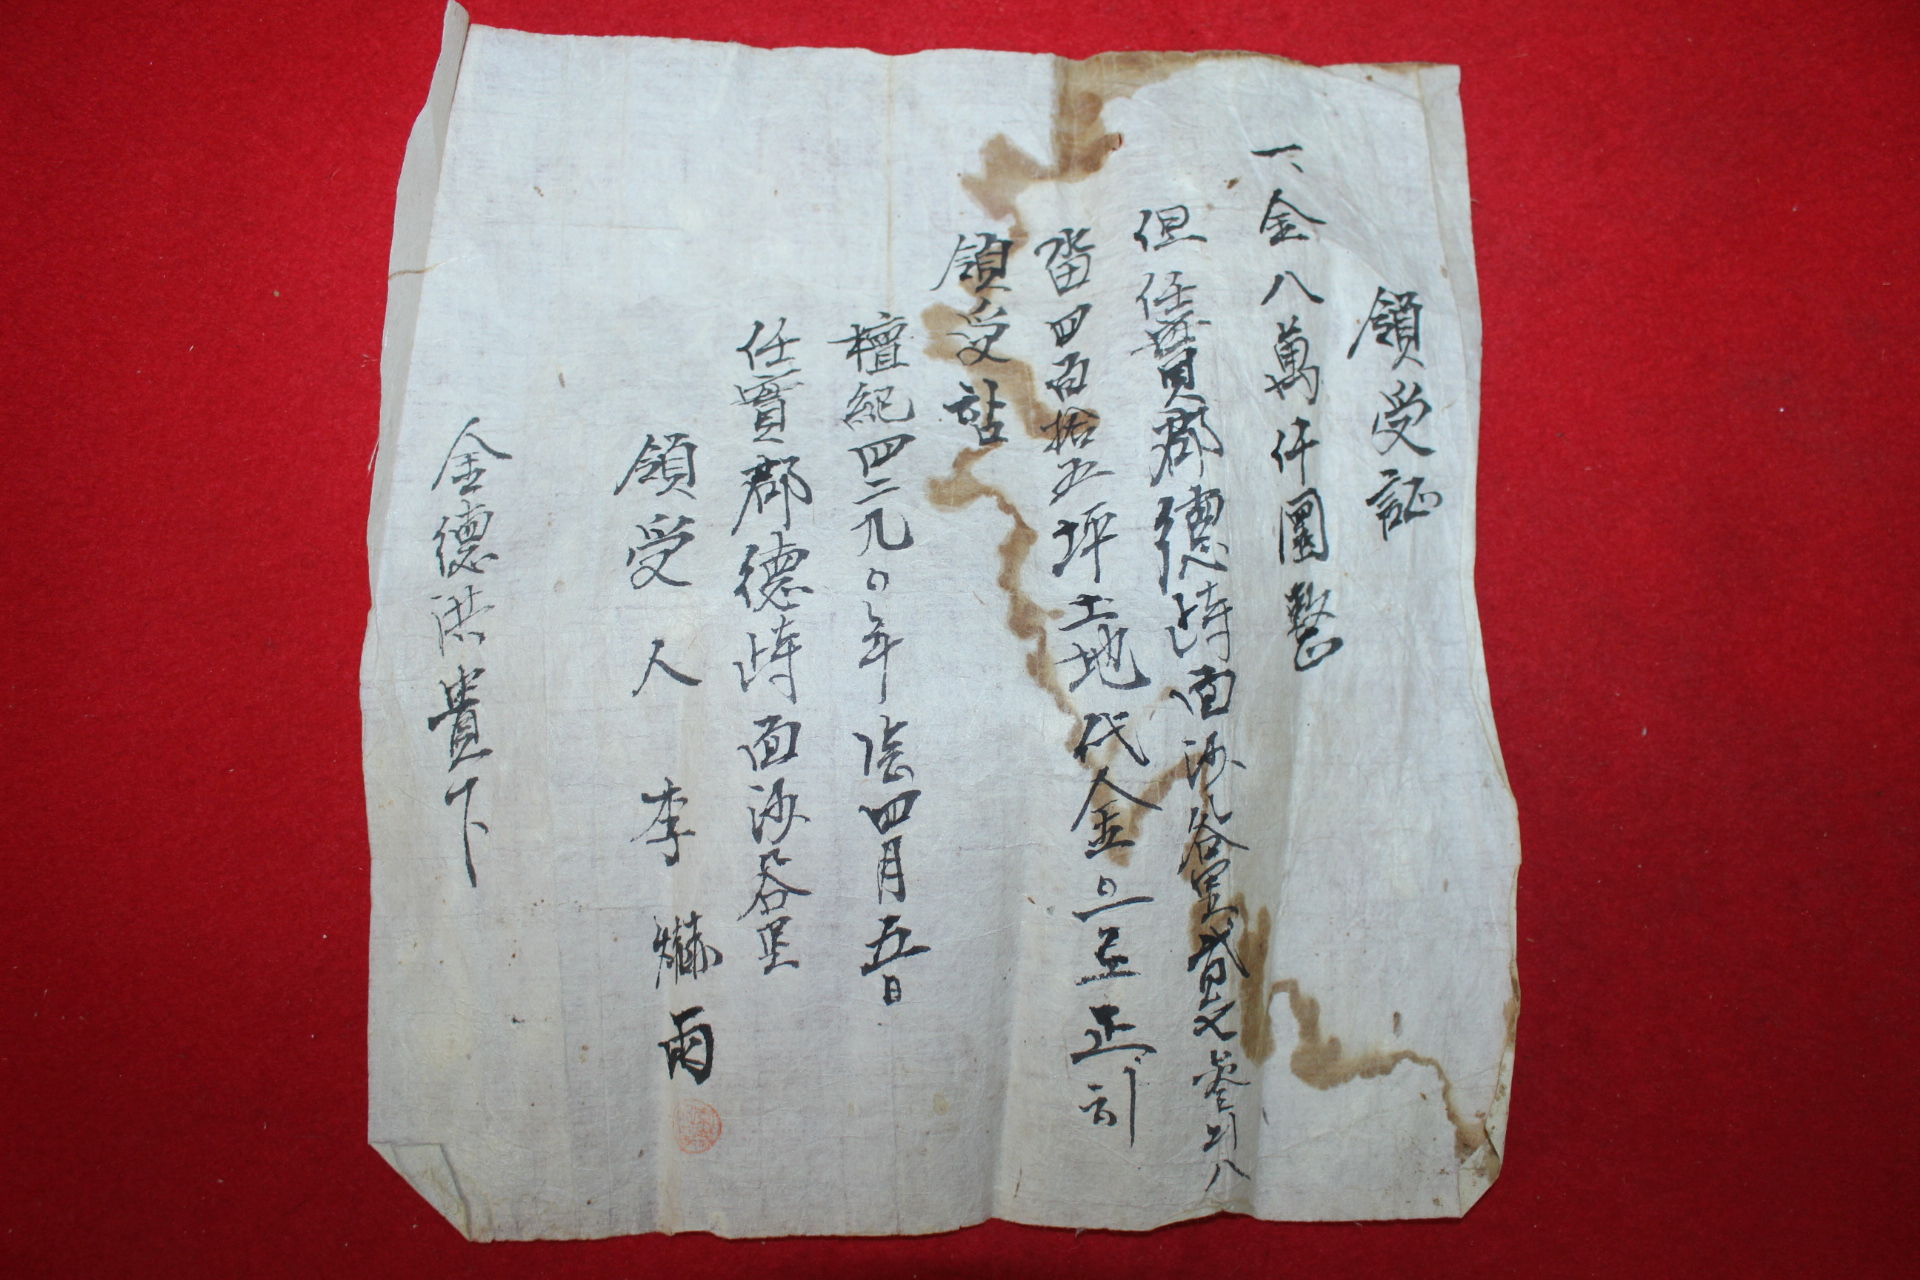 領受証
一、金八萬仟圜整
但任實郡德峙面沙谷里貳七參의八
畓四百拾五坪土地代金으로正히
領受함
檀紀四二九〇年陰四月五日
任實郡德峙面沙谷里
領受人 李爀雨
金德洪貴下